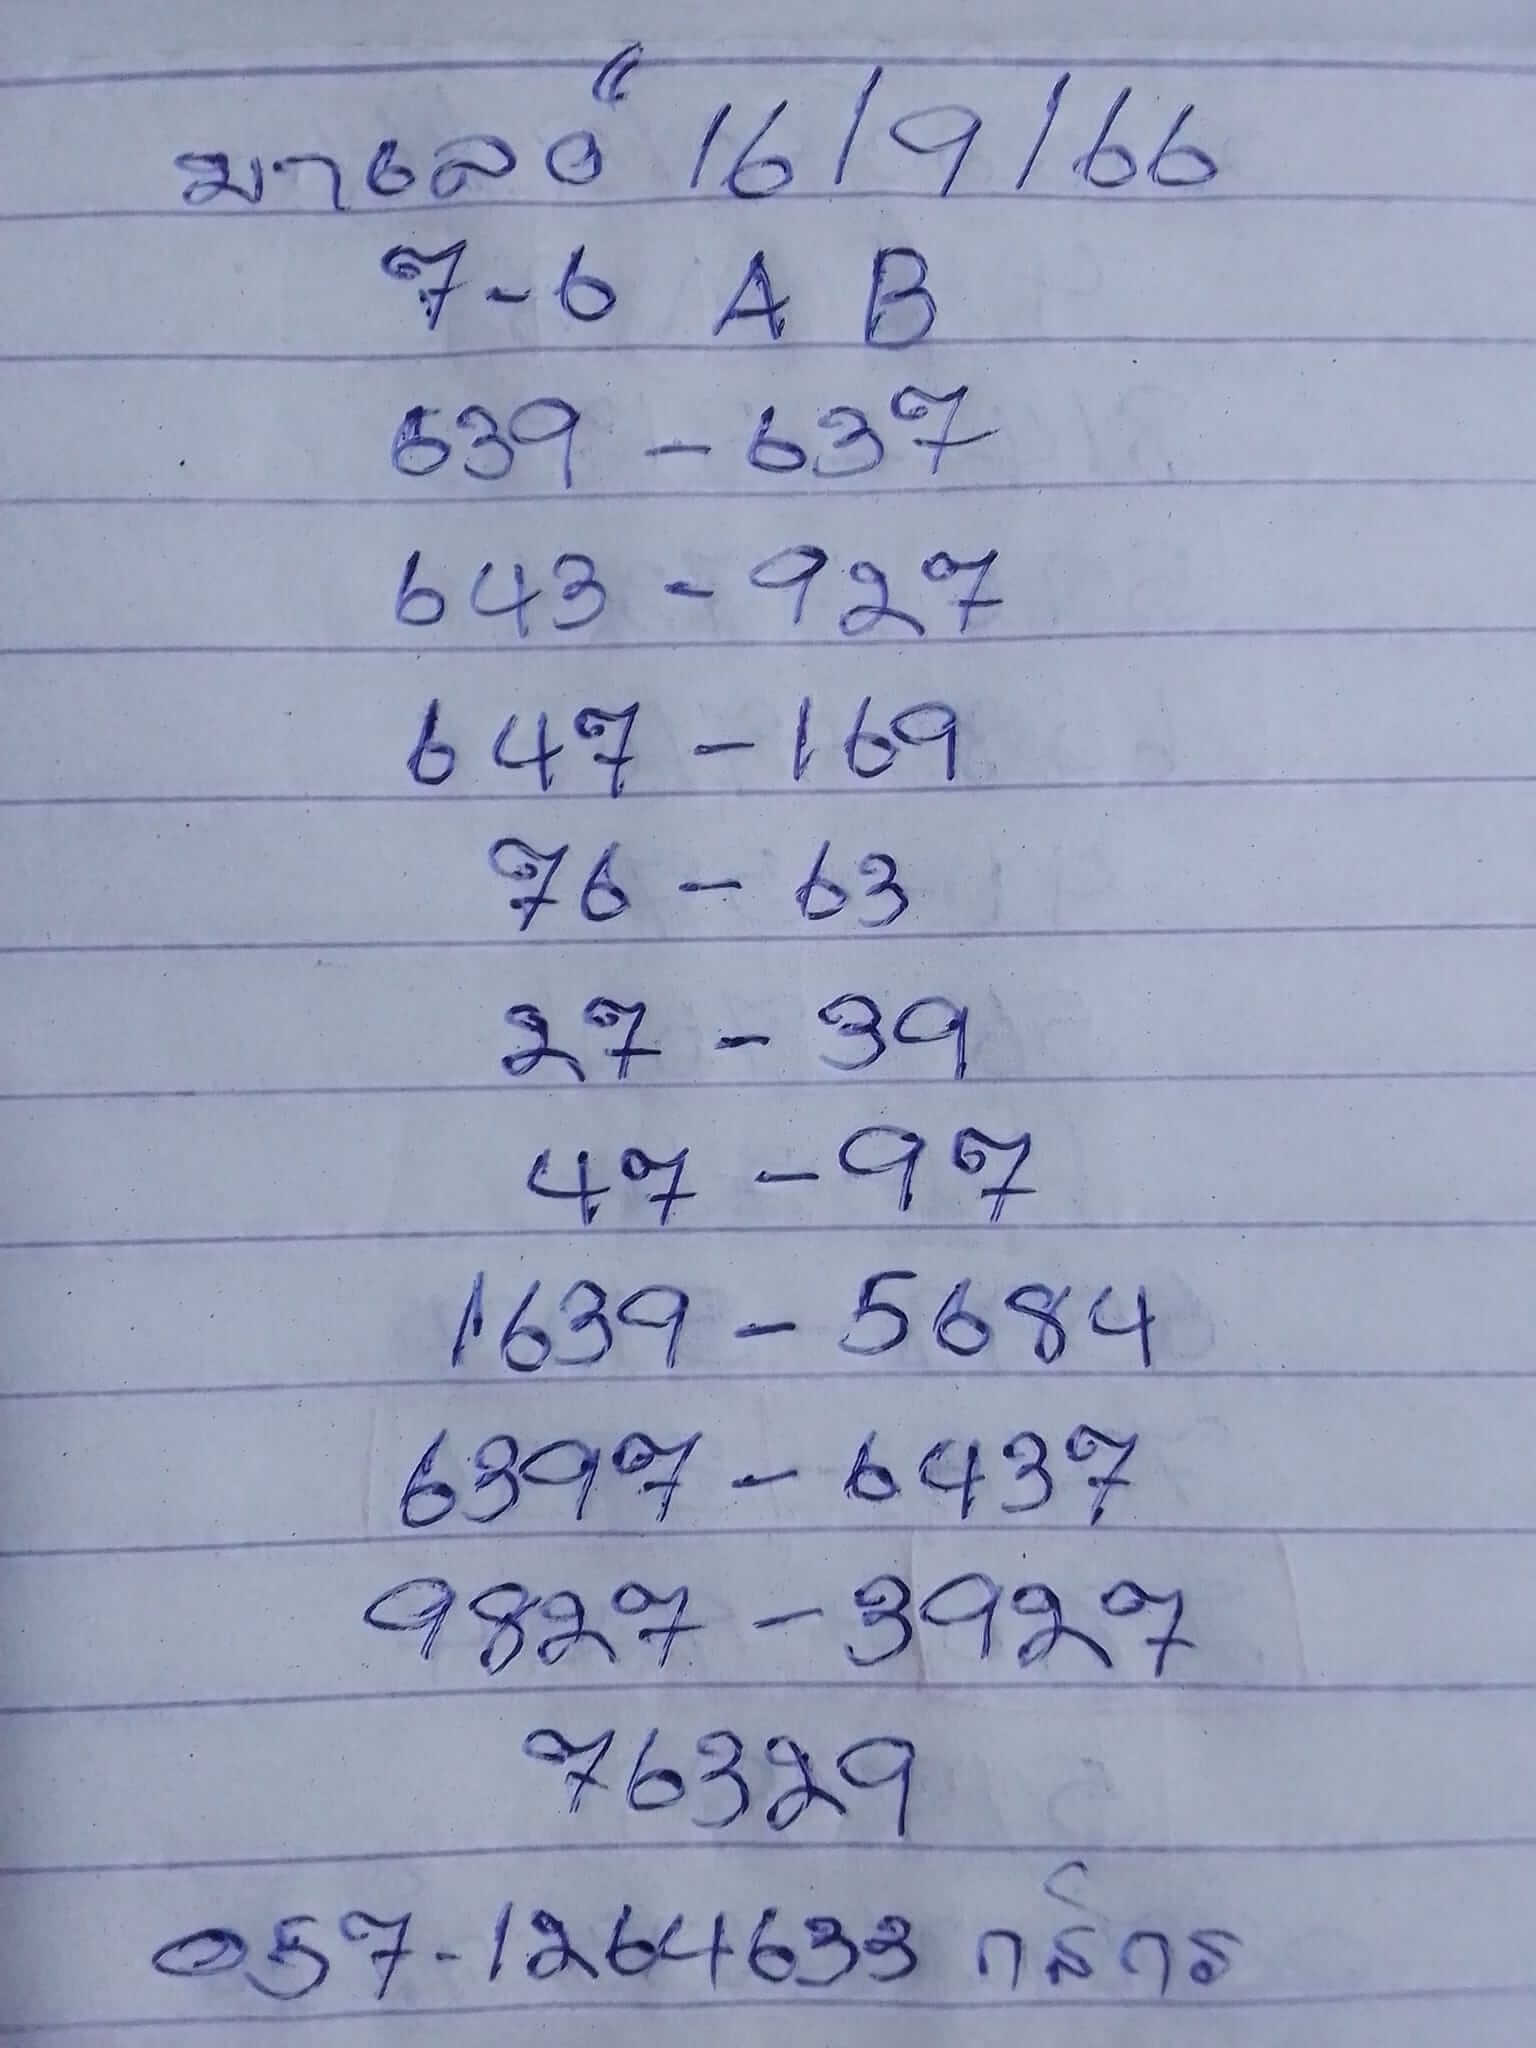 มาเลย์ 16/9/66
7-6 A B
639 - 637
643 - 927
647 - 169
76 - 63
27 - 39
47 - 97
1639 - 5684
6397 - 6437
9827 - 3927
76329
057-1264633 กสิกร